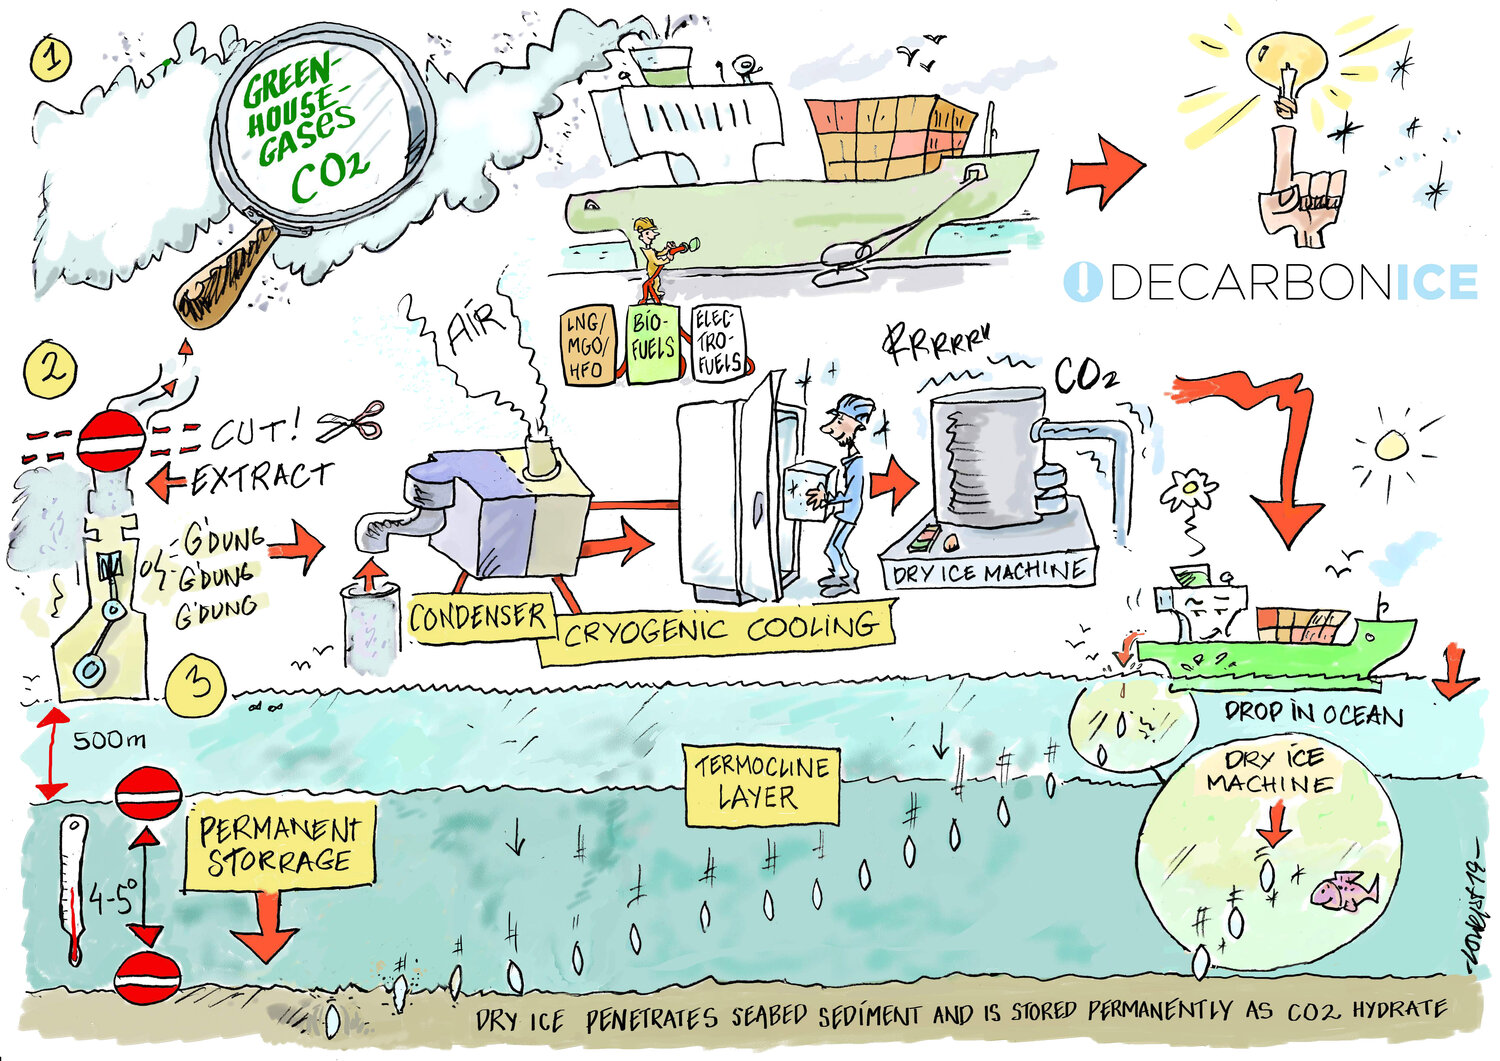 1
GREEN-
HOUSE-
GASES
CO2
DECARBONICE
LNG/
MGO/
HFO
BIO-
FUELS
ELEC-
TRO-
FUELS
2
CUT!
EXTRACT
G'DUNG
G'DUNG
G'DUNG
AIR
CONDENSER
CRYOGENIC COOLING
RRRRRR
CO2
DRY ICE MACHINE
3
500m
DROP IN OCEAN
TERMOCLINE
LAYER
DRY ICE
MACHINE
PERMANENT
STORRAGE
4-5°
DRY ICE PENETRATES SEABED SEDIMENT AND IS STORED PERMANENTLY AS CO2 HYDRATE